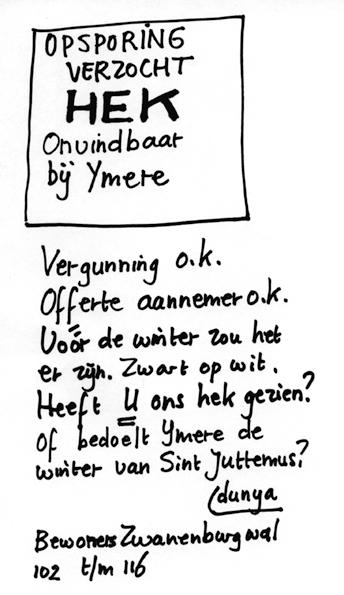 OPSPORING
VERZOCHT
HEK
Onvindbaar
bij Ymere
Vergunning o.k.
Offerte aannemer o.k.
Vóór de winter zou het
er zijn. Zwart op wit.
Heeft U ons hek gezien?
Of bedoelt Ymere de
winter van Sint Juttemus?
(dunya
Bewoners Zwanenburgwal
102 t/m 116